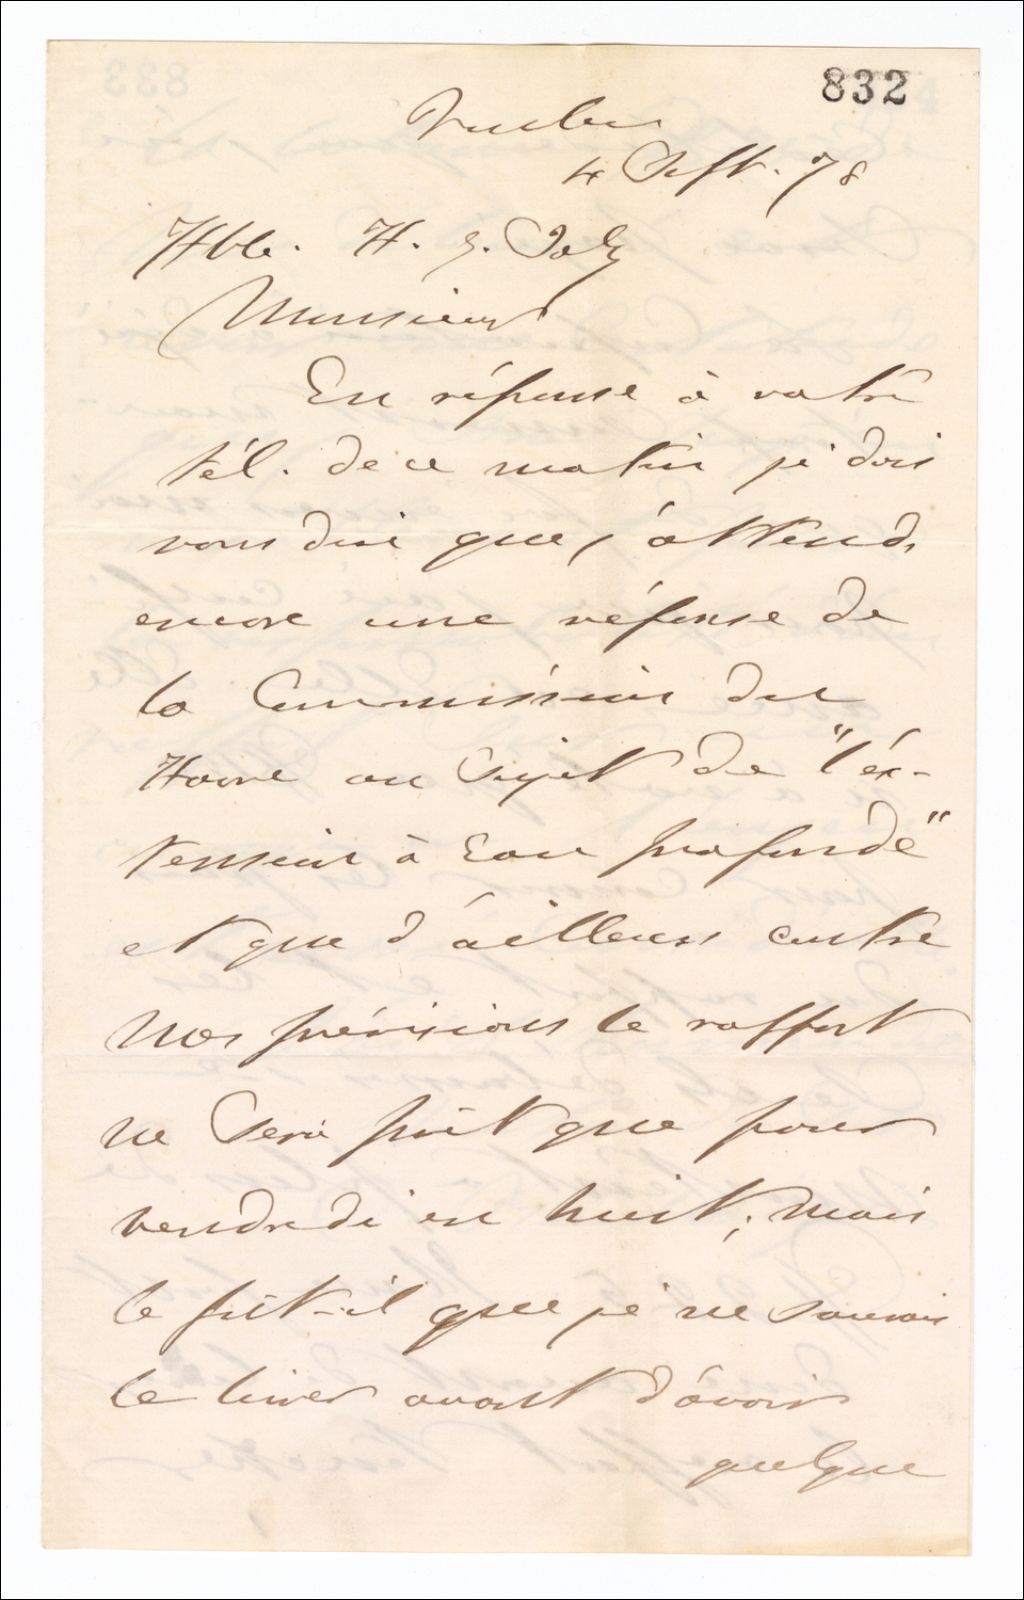 832
Quebec
4 Sept. 78
Hble. H. G. Joly
Monsieur
En réponse à votre
tél. de ce matin je dois
vous dire que j'attends
encore une réponse de
la Commission du
Havre au sujet de "l'ex-
tension à Eau profonde"
et que d'ailleurs contre
nos prévisions le rapport
ne sera prêt que pour
vendredi en huit; mais
le fut-il que je ne saurais
le livrer avant d'avoir
quelque